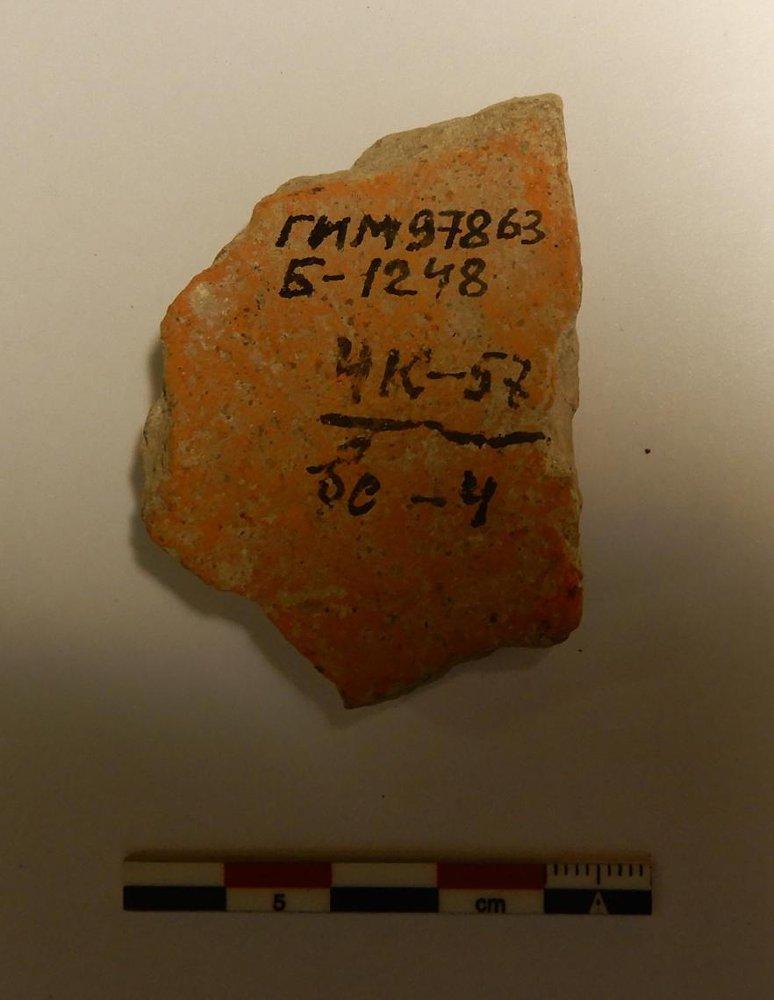 ГИМ97863
Б-1248
ЧК-57
бс-4
5 cm